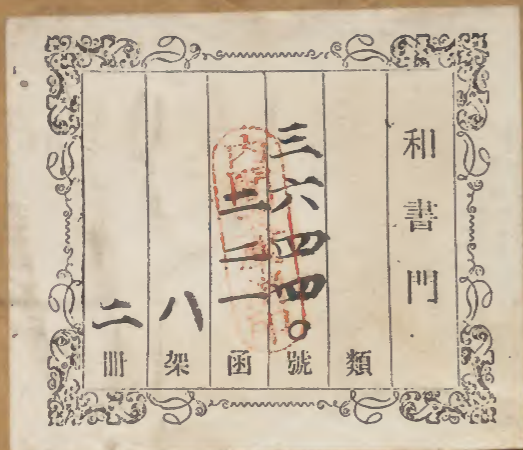 和書門
類
三六四四〇號
二二一函
八架
二冊